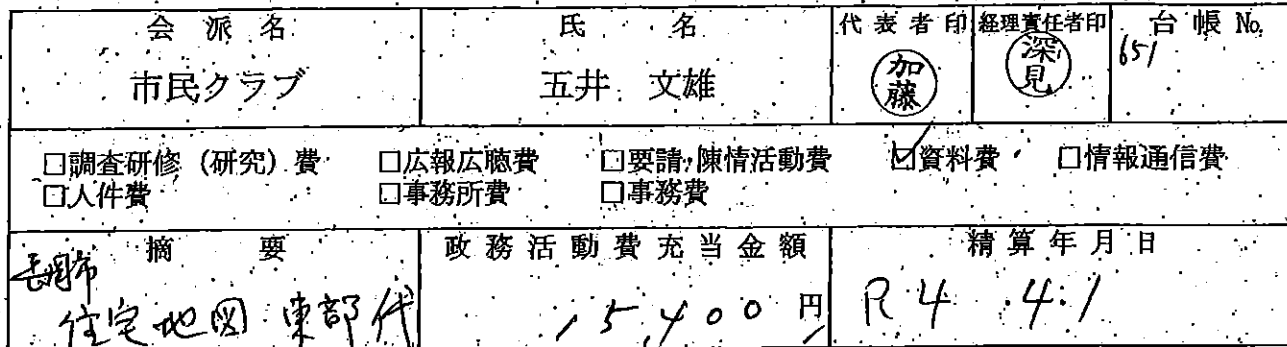 会派名 氏名 代表者印 経理責任者印 台帳No.
市民クラブ 五井 文雄 加藤 深見 651
□調査研修(研究)費 □広報広聴費 □要請・陳情活動費 ☑資料費 □情報通信費
□人件費 □事務所費 □事務費
摘要 政務活動費充当金額 精算年月日
長岡市
住宅地図 東部代 15,400円 R4.4.1